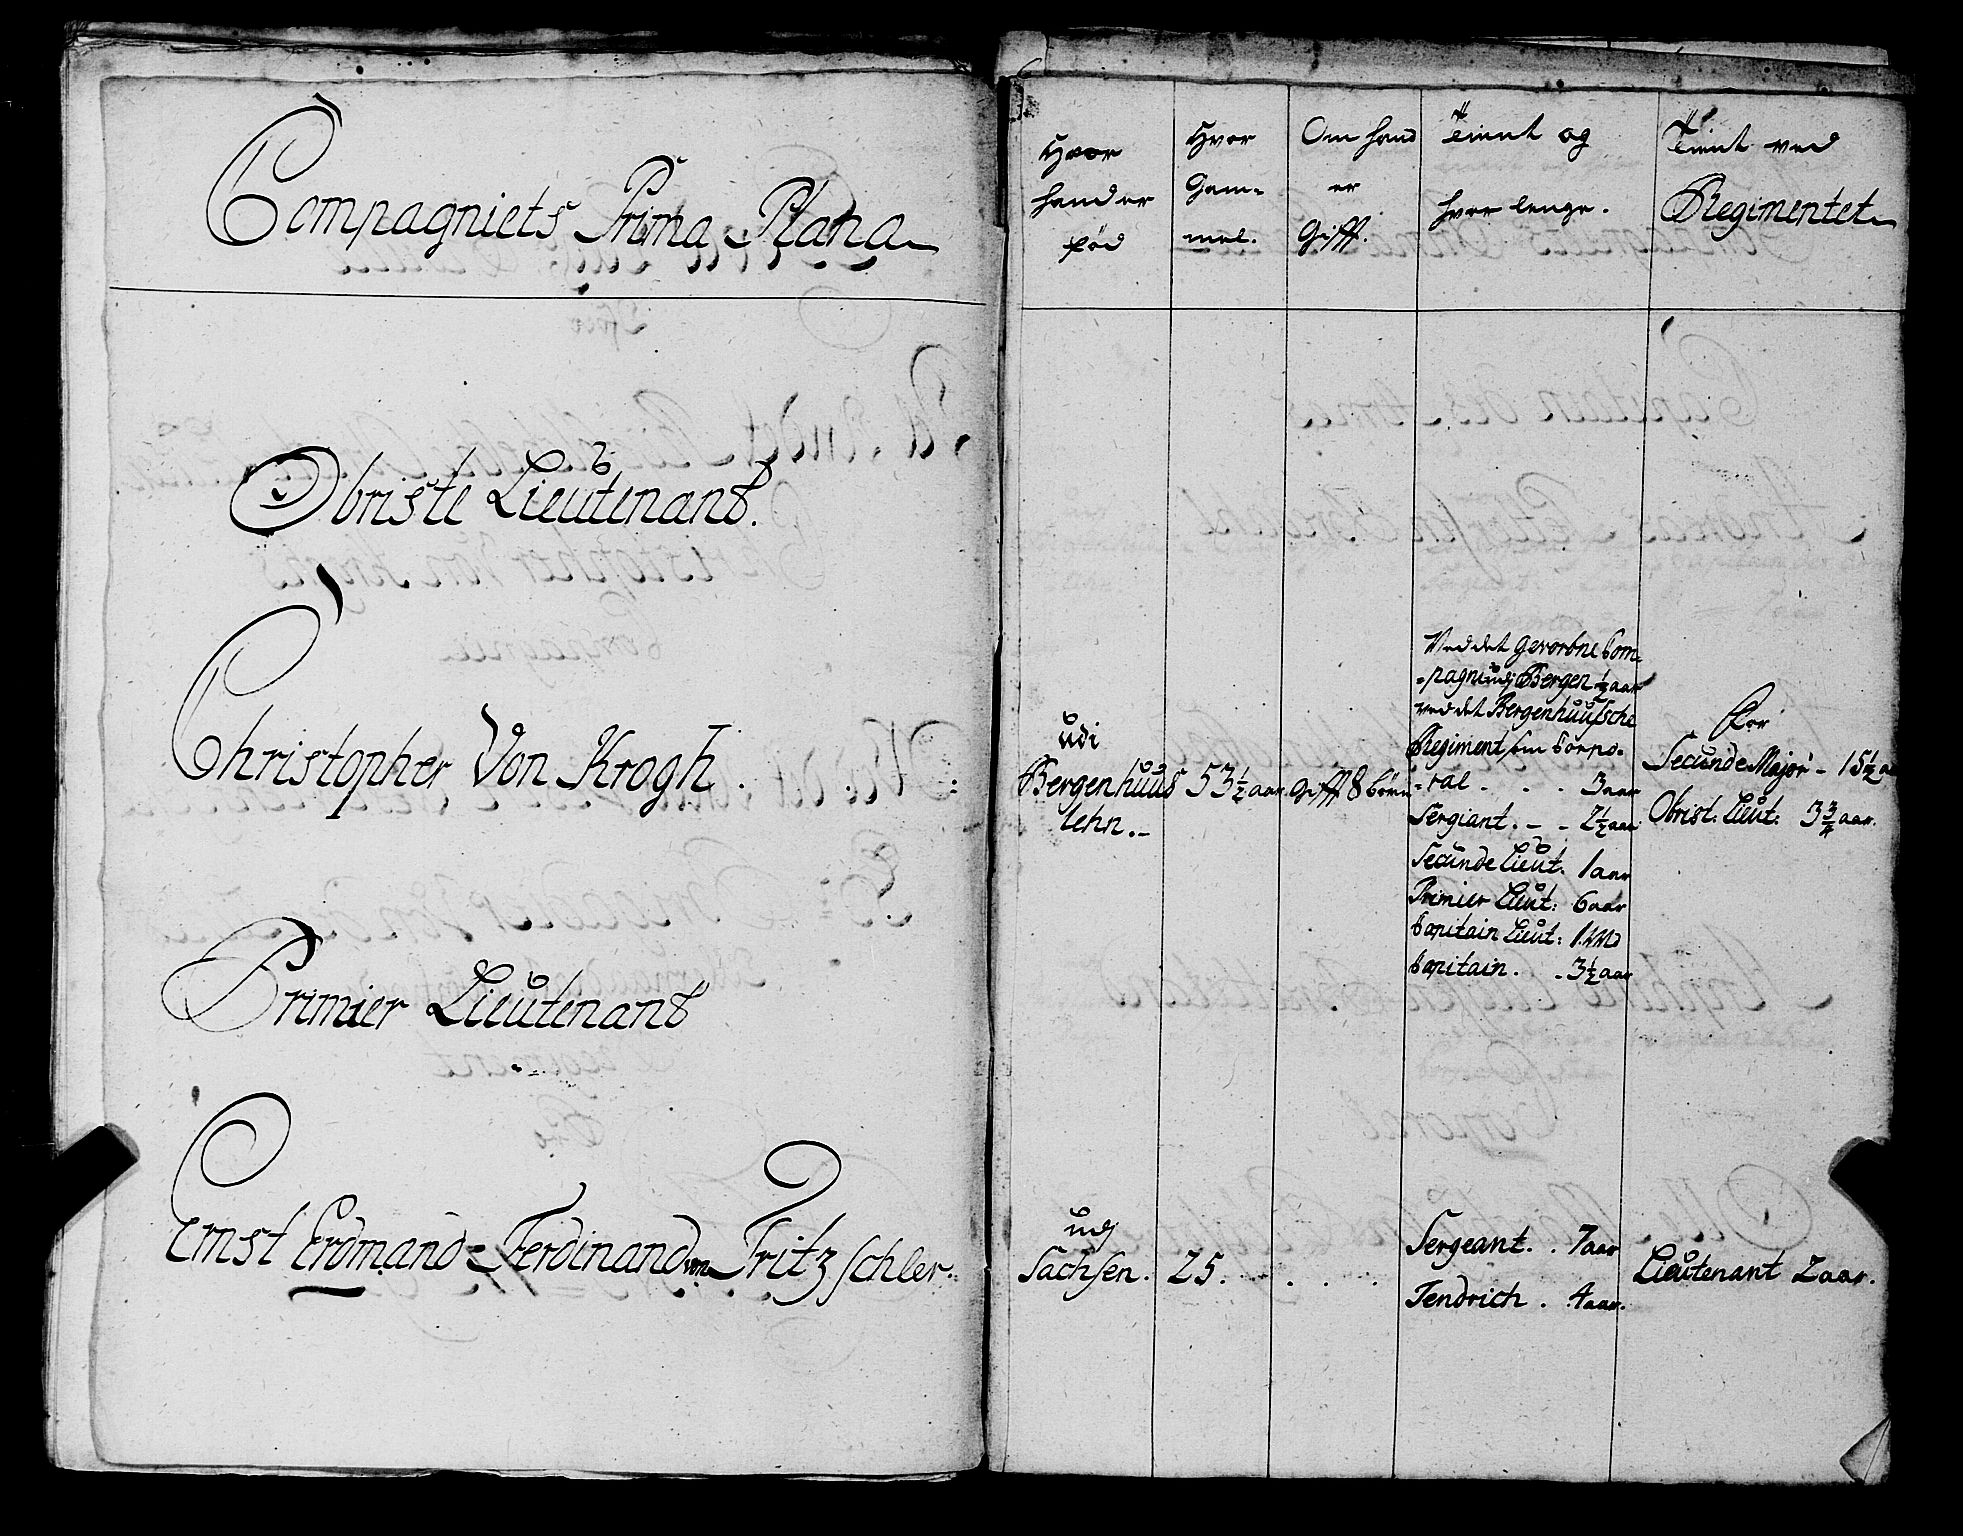 Compagniets Prima Plana
Obriste Lieutenant.
Christopher Von Krogh.
Primier Lieutenant
Ernst Erdmand Ferdinand von Fritzschler.
Hvor
hand er
fød
Hvor
Gam=
mel.
Om hand
er
Gifft.
Tient og
hvor lenge.
Tient ved
Regimentet
udi
Bergenhuus
lehn.
53 1/2 aar.
Gifft 8 börn
Ved det Gevorbne Com=
=pagnie udj Bergen 1/2 aar
ved det Bergenhuusche
Regiment som Corpo=
=ral . . . 3 aar
Sergiant. - - 2 1/2 aar
Secunde Lieut. 1 aar
Primier Lieut: 6 aar
Capitain Lieut: 1. Md
Capitain. - 3 1/2 aar
For
Secunde Major - 15 1/2 a
Obrist: Lieut: 3 3/4 aar.
udj
Sachsen.
25.
Sergeant. . 7 aar
Fendrich . 4 aar.
Lieutenant 2 aar.